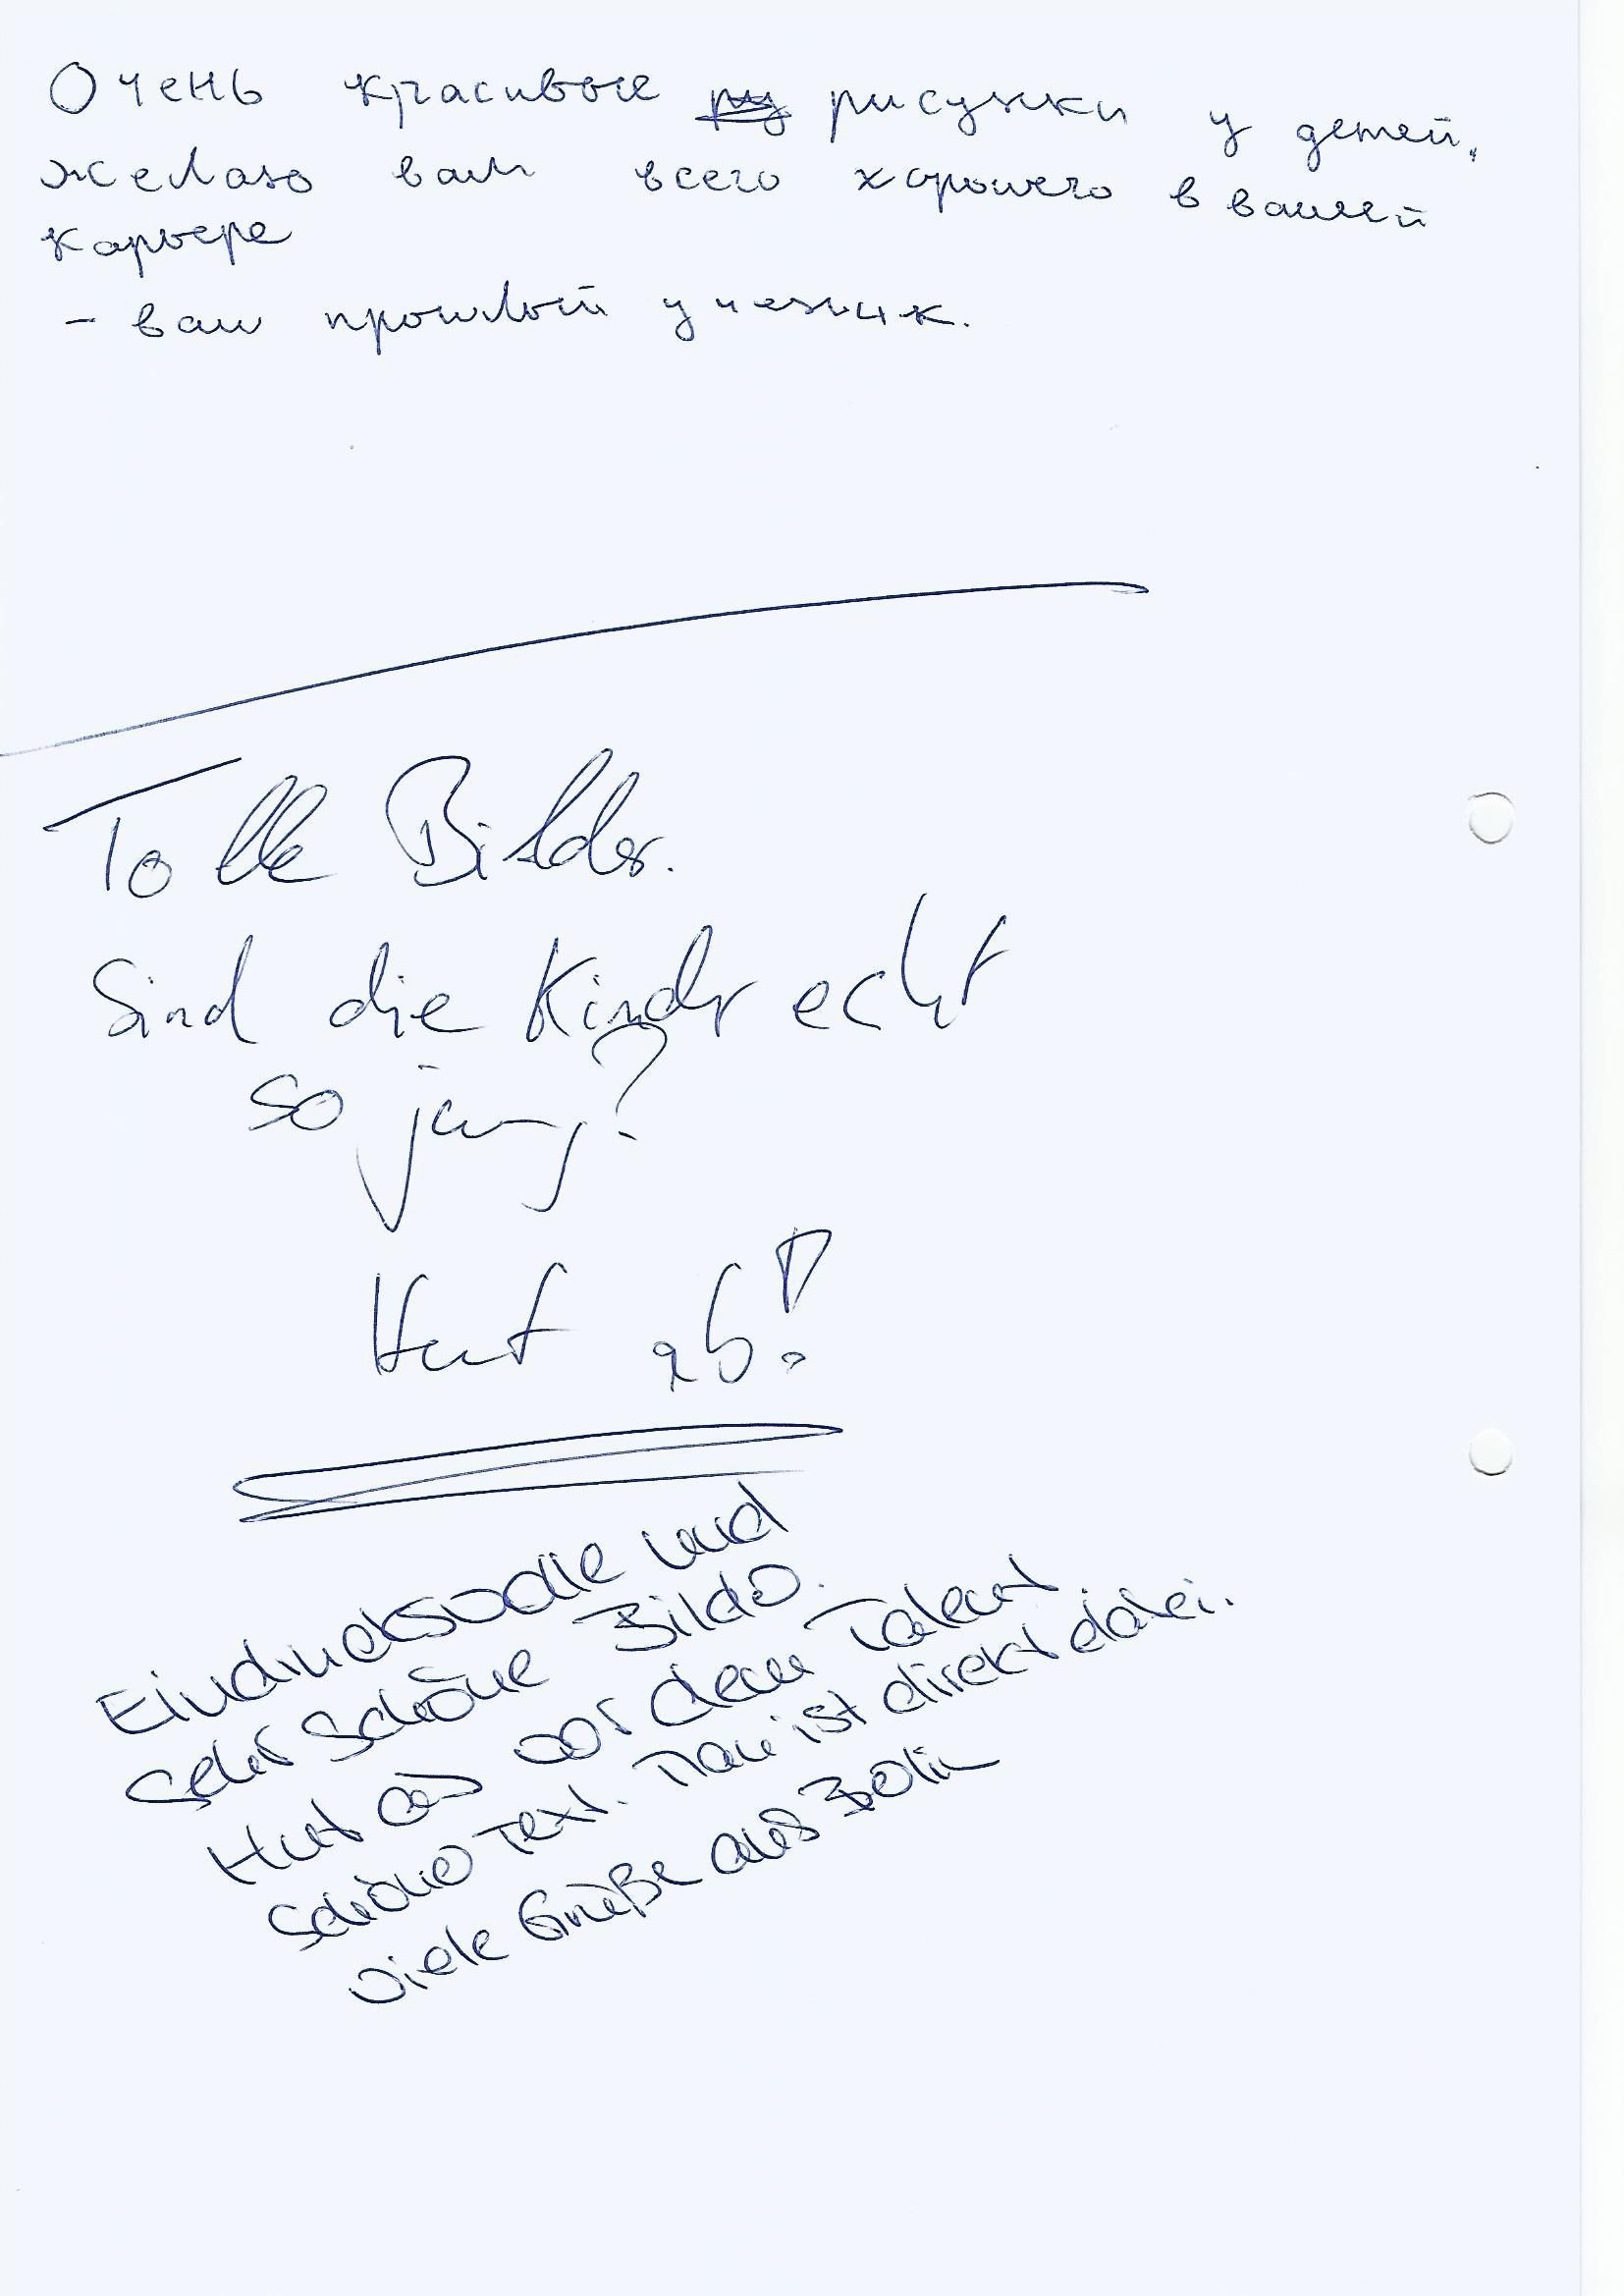 Очень красивые рисунки у детей,
желаю вам всего хорошего в вашей
карьере
- ваш прошлый ученик.
Tolle Bilder.
Sind die Kinder echt
so jung?
Hut ab!
Eindrucksvolle und
sehr schöne Bilder.
Hut ab vor dem Talent
schöner Text. Man ist direkt dabei.
Viele Grüße aus Berlin